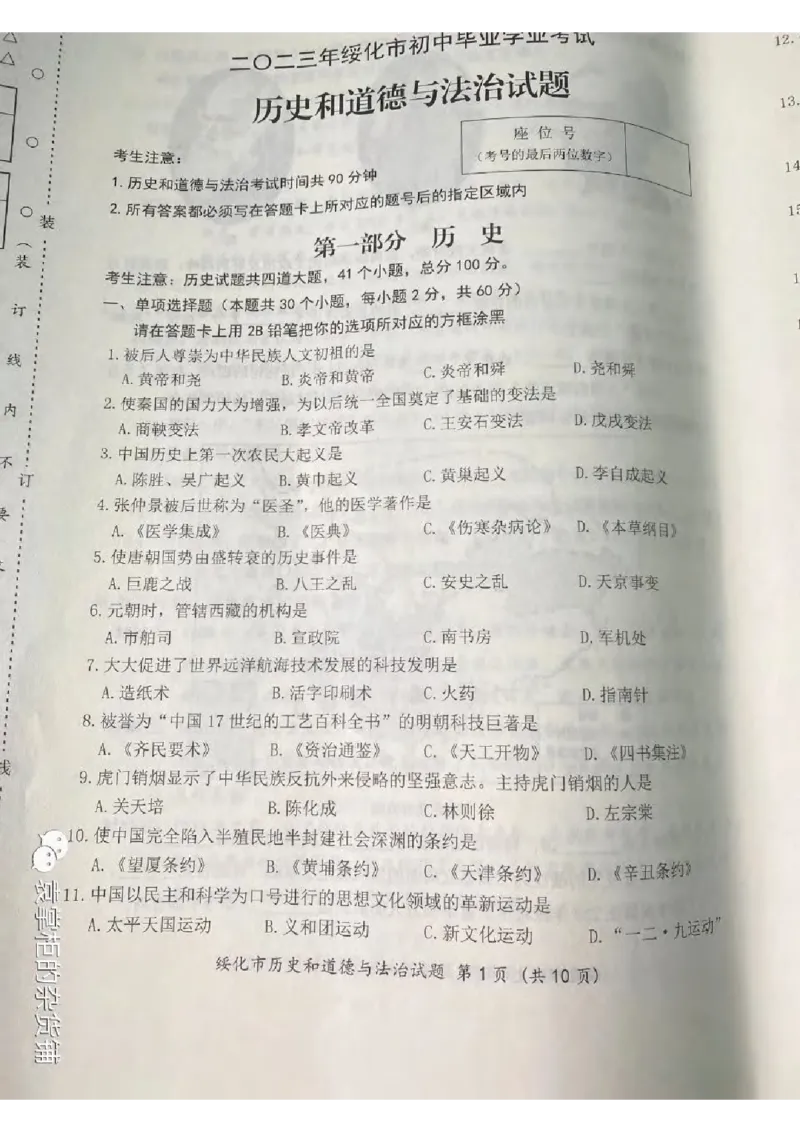 二〇二三年绥化市初中毕业学业考试
历史和道德与法治试题
座 位 号
（考号的最后两位数字）
考生注意：
1. 历史和道德与法治考试时间共 90 分钟
2. 所有答案都必须写在答题卡上所对应的题号后的指定区域内
第一部分 历 史
考生注意：历史试题共四道大题，41 个小题，总分 100 分。
一、单项选择题（本题共 30 个小题，每小题 2 分，共 60 分）
请在答题卡上用 2B 铅笔把你的选项所对应的方框涂黑
1. 被后人尊崇为中华民族人文初祖的是
A. 黄帝和尧 B. 炎帝和黄帝 C. 炎帝和舜 D. 尧和舜
2. 使秦国的国力大为增强，为以后统一全国奠定了基础的变法是
A. 商鞅变法 B. 孝文帝改革 C. 王安石变法 D. 戊戌变法
3. 中国历史上第一次农民大起义是
A. 陈胜、吴广起义 B. 黄巾起义 C. 黄巢起义 D. 李自成起义
4. 张仲景被后世称为“医圣”，他的医学著作是
A. 《医学集成》 B. 《医典》 C. 《伤寒杂病论》 D. 《本草纲目》
5. 使唐朝国势由盛转衰的历史事件是
A. 巨鹿之战 B. 八王之乱 C. 安史之乱 D. 天京事变
6. 元朝时，管辖西藏的机构是
A. 市舶司 B. 宣政院 C. 南书房 D. 军机处
7. 大大促进了世界远洋航海技术发展的科技发明是
A. 造纸术 B. 活字印刷术 C. 火药 D. 指南针
8. 被誉为“中国 17 世纪的工艺百科全书”的明朝科技巨著是
A. 《齐民要术》 B. 《资治通鉴》 C. 《天工开物》 D. 《四书集注》
9. 虎门销烟显示了中华民族反抗外来侵略的坚强意志。主持虎门销烟的人是
A. 关天培 B. 陈化成 C. 林则徐 D. 左宗棠
10. 使中国完全陷入半殖民地半封建社会深渊的条约是
A. 《望厦条约》 B. 《黄埔条约》 C. 《天津条约》 D. 《辛丑条约》
11. 中国以民主和科学为口号进行的思想文化领域的革新运动是
A. 太平天国运动 B. 义和团运动 C. 新文化运动 D. “一二·九运动”
绥化市历史和道德与法治试题 第 1 页（共 10 页）
装
（装
订
线
内
不
订
要
线
袁掌柜的杂货铺
12.
13.
14
15
1